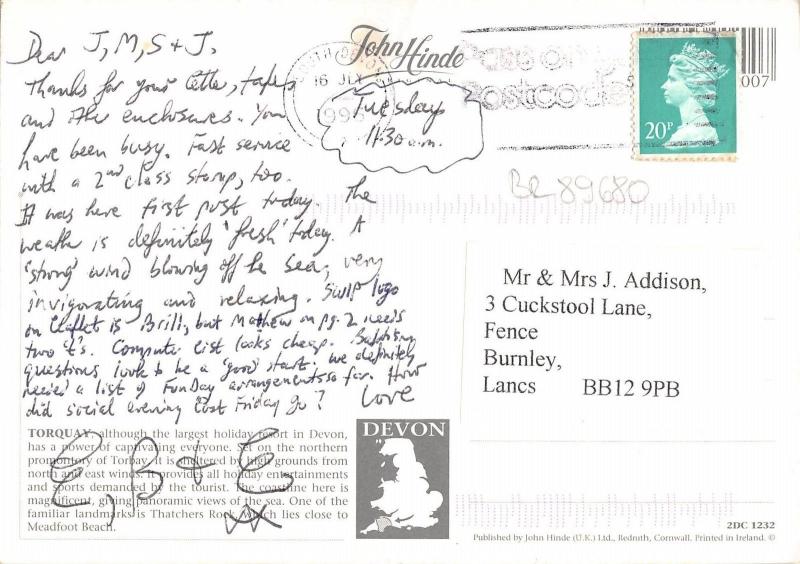 Dear J, M, S + J,
Thanks for your letter, tapes
and other enclosures. You
have been busy. Fast service
with a 2nd class stamp, too.
It was here first post today. The
weather is definitely 'fresh' today. A
'strong' wind blowing off the sea, very
invigorating and relaxing. SWIP logo
on leaflet is Brill, but Mathew on pg. 2 needs
two 't's. Computer list looks cheap. Baptising
questions look to be a 'good' start. We definitely
need a list of Funday arrangements so far. How
did social evening last Friday go? Love
E, B + E
xx
John Hinde
16 JLY
1996
Pass on
Postcode
Tuesday
11.30 a.m.
20P
007
BR 89680
Mr & Mrs J. Addison,
3 Cuckstool Lane,
Fence
Burnley,
Lancs BB12 9PB
TORQUAY, although the largest holiday resort in Devon,
has a power of captivating everyone. Set on the northern
promontory of Torbay, it is sheltered by high grounds from
north and east winds. It provides all holiday entertainments
and sports demanded by the tourist. The coastline here is
magnificent, giving panoramic views of the sea. One of the
familiar landmarks is Thatchers Rock, which lies close to
Meadfoot Beach.
DEVON
2DC 1232
Published by John Hinde (U.K.) Ltd., Redruth, Cornwall. Printed in Ireland. ©